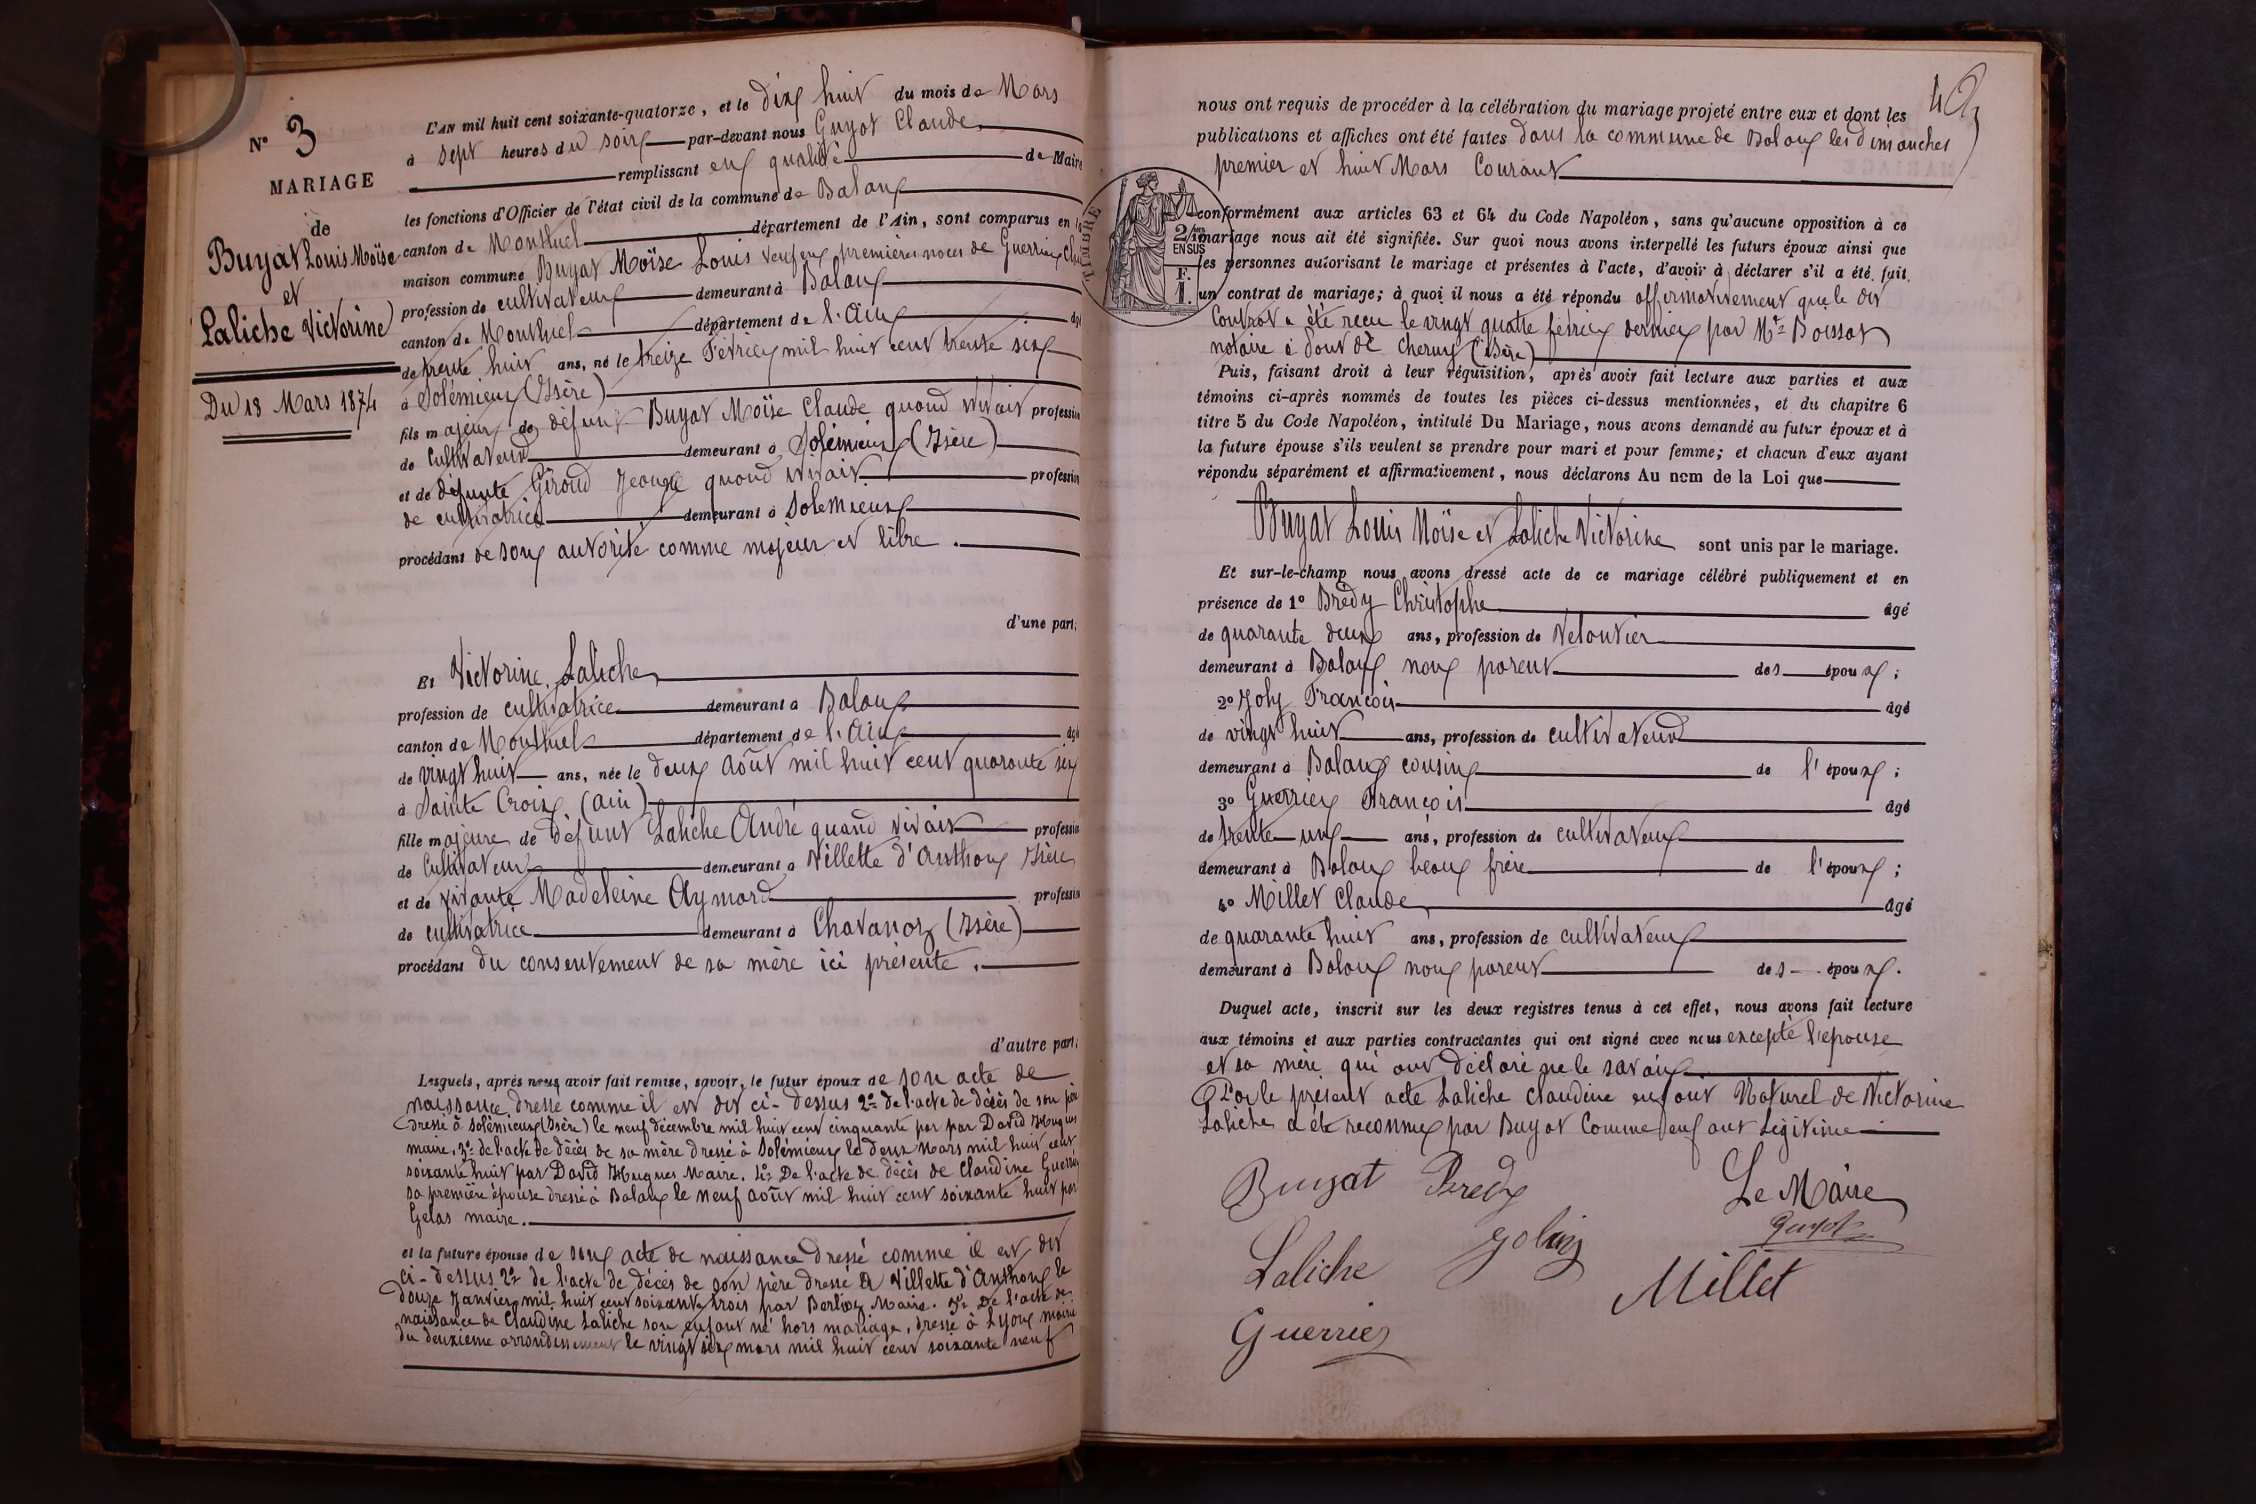 N° 3
MARIAGE
de
Buyat Louis Moïse
et
Laliche Victorine
Du 18 Mars 1874
L'AN mil huit cent soixante-quatorze, et le dix huit du mois de Mars
à sept heures du soir par-devant nous Guyot Claude
remplissant en qualité de Maire
les fonctions d'Officier de l'état civil de la commune de Balan
canton de Montluel département de l'Ain, sont comparus en la
maison commune Buyat Moïse Louis veuf en premières noces de Guerrier
profession de cultivateur demeurant à Balan
canton de Montluel département de l'Ain âgé
de trente huit ans, né le treize Février mil huit cent trente six
à Solémieu (Isère)
fils majeur de défunt Buyat Moïse Claude quand vivait profession
de Cultivateur demeurant à Solémieu (Isère)
et de défunte Giroud quand vivait profession
de cultivatrice demeurant à Solemieu
procédant de son autorité comme majeur et libre.
d'une part;
Et Victorine Laliche
profession de cultivatrice demeurant à Balan
canton de Montluel département de l'Ain âgé
de vingt huit ans, née le deux Août mil huit cent quarante six
à Sainte Croix (Ain)
fille majeure de défunt Laliche André quand vivait profession
de Cultivateur demeurant à Villette d'Anthon Isère
et de vivante Madeleine Aymard profession
de cultivatrice demeurant à Chavanoz (Isère)
procédant du consentement de sa mère ici présente.
d'autre part;
Lesquels, après nous avoir fait remise, savoir, le futur époux de son acte de
naissance dressé comme il est dit ci-dessus 2° de l'acte de décès de son père
dressé à Solémieu (Isère) le neuf décembre mil huit cent cinquante par par David Hugues
maire. 3° de l'acte de décès de sa mère dressé à Solémieu le deux Mars mil huit cent
soixante huit par David Hugues Maire. 4° De l'acte de décès de Claudine Guerrier
sa première épouse dressé à Balan le neuf août mil huit cent soixante huit par
Gelas maire.
et la future épouse de son acte de naissance dressé comme il est dit
ci-dessus 2° de l'acte de décès de son père dressé à Villette d'Anthon le
douze Janvier mil huit cent soixante trois par Berlioz Maire. 3° De l'acte de
naissance de Claudine Laliche son enfant né hors mariage, dressé à Lyon mairie
du deuxième arrondissement le vingt six mars mil huit cent soixante neuf
nous ont requis de procéder à la célébration du mariage projeté entre eux et dont les
publications et affiches ont été faites dans la commune de Balan les dimanches
premier et huit Mars Courant
TIMBRE
2/10mes
EN SUS
F.
1.
conformément aux articles 63 et 64 du Code Napoléon, sans qu'aucune opposition à ce
mariage nous ait été signifiée. Sur quoi nous avons interpellé les futurs époux ainsi que
les personnes autorisant le mariage et présentes à l'acte, d'avoir à déclarer s'il a été fait
un contrat de mariage; à quoi il nous a été répondu affirmativement que le dit
Contrat a été reçu le vingt quatre février dernier par Mtre Boissat
notaire à Pont de Cheruy (Isère)
Puis, faisant droit à leur réquisition, après avoir fait lecture aux parties et aux
témoins ci-après nommés de toutes les pièces ci-dessus mentionnées, et du chapitre 6
titre 5 du Code Napoléon, intitulé Du Mariage, nous avons demandé au futur époux et à
la future épouse s'ils veulent se prendre pour mari et pour femme; et chacun d'eux ayant
répondu séparément et affirmativement, nous déclarons Au nom de la Loi que
Buyat Louis Moïse et Laliche Victorine sont unis par le mariage.
Et sur-le-champ nous avons dressé acte de ce mariage célébré publiquement et en
présence de 1° Brédy Christophe âgé
de quarante deux ans, profession de Veloutier
demeurant à Balan non parent des époux;
2° Joly François âgé
de vingt huit ans, profession de cultivateur
demeurant à Balan cousin de l'époux;
3° Guerrier François âgé
de trente un ans, profession de cultivateur
demeurant à Balan beau frère de l'époux;
4° Millet Claude âgé
de quarante huit ans, profession de cultivateur
demeurant à Balan non parent des époux.
Duquel acte, inscrit sur les deux registres tenus à cet effet, nous avons fait lecture
aux témoins et aux parties contractantes qui ont signé avec nous excepté l'epouse
et sa mère qui ont déclaré ne le savoir
Par le présent acte Laliche Claudine enfant Naturel de Victorine
Laliche a été reconnu par Buyat Comme enfant Légitime
Buyat Bredy Le Maire
Guyot
Laliche Joly Millet
Guerrier